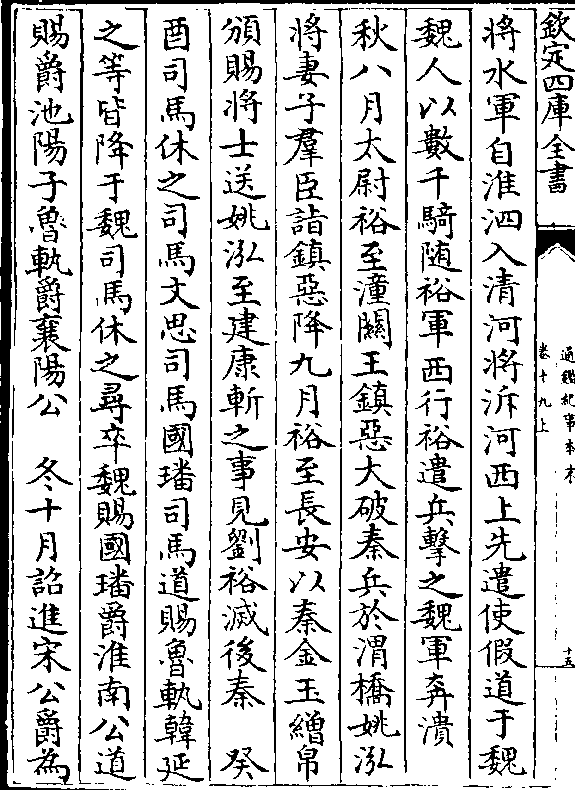 欽定四庫全書
通鑑紀事本末
卷十九上
十五
將水軍自淮泗入清河將泝河西上先遣使假道于魏
魏人以數千騎随裕軍西行裕遣兵擊之魏軍奔潰
秋八月太尉裕至潼關王鎮惡大破秦兵於渭橋姚泓
將妻子羣臣詣鎮惡降九月裕至長安以秦金玉繒帛
頒賜將士送姚泓至建康斬之事見劉裕滅後秦　癸
酉司馬休之司馬文思司馬國璠司馬道賜魯軌韓延
之等皆降于魏司馬休之尋卒魏賜國璠爵淮南公道
賜爵池陽子魯軌爵襄陽公　冬十月詔進宋公爵為